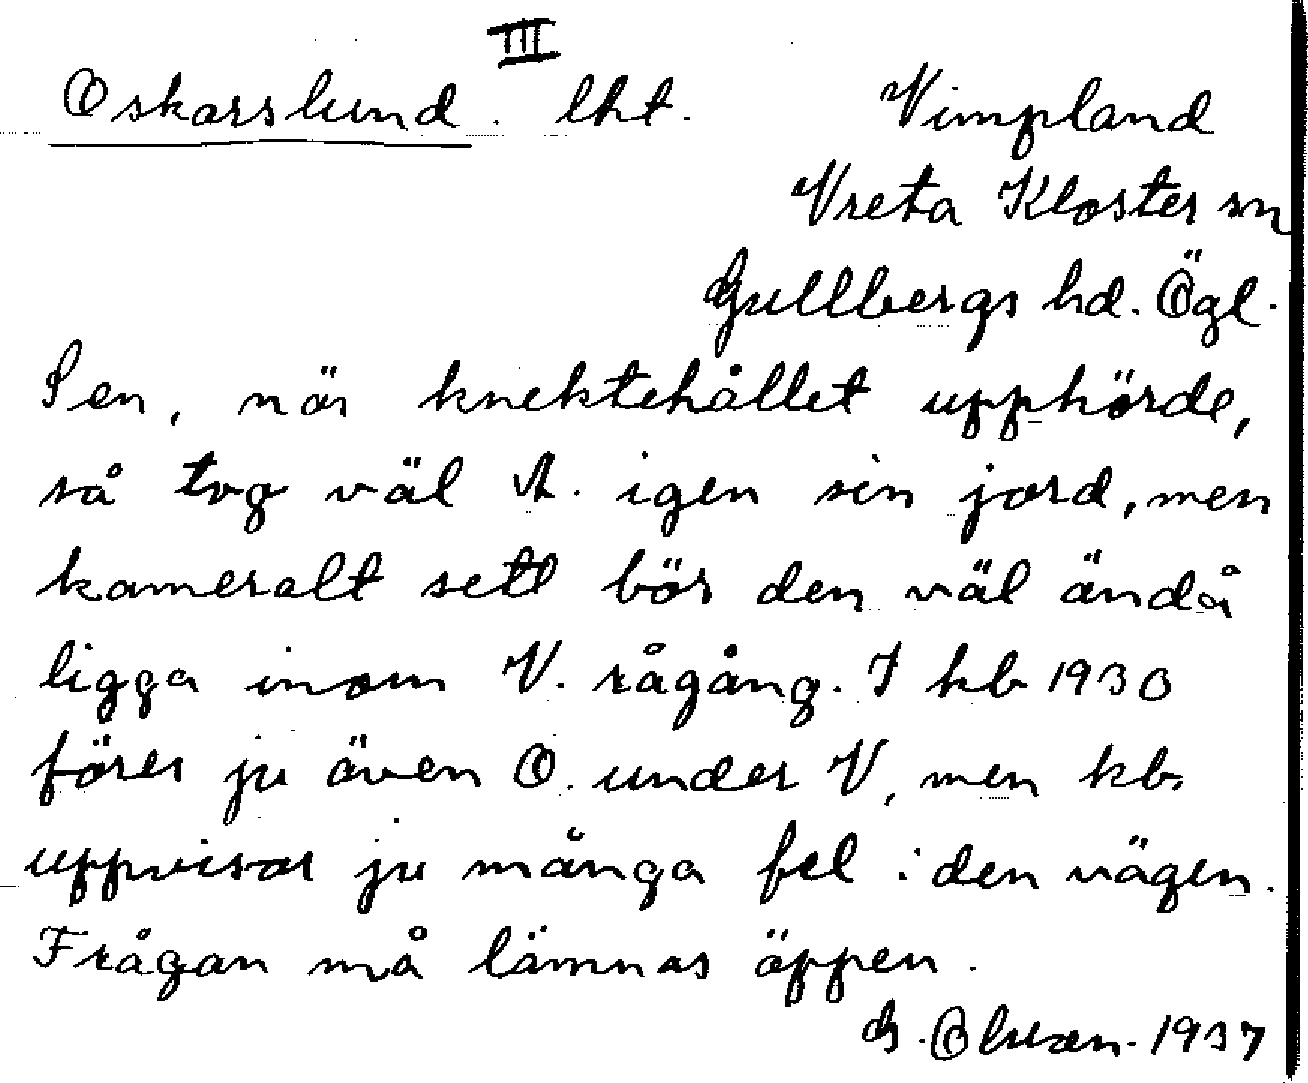 III
Oskarslund. lht. Vimpland
Vreta Kloster sn
Gullbergs hd. Ögl.
Sen, när knektehållet upphörde,
så tog väl A. igen sin jord, men
kameralt sett bör den väl ändå
ligga inom V. rågång. I kb 1930
förer ju även O. under V, men kb.
uppvisar ju många fel i den vägen.
Frågan må lämnas öppen.
G. Olsson. 1937